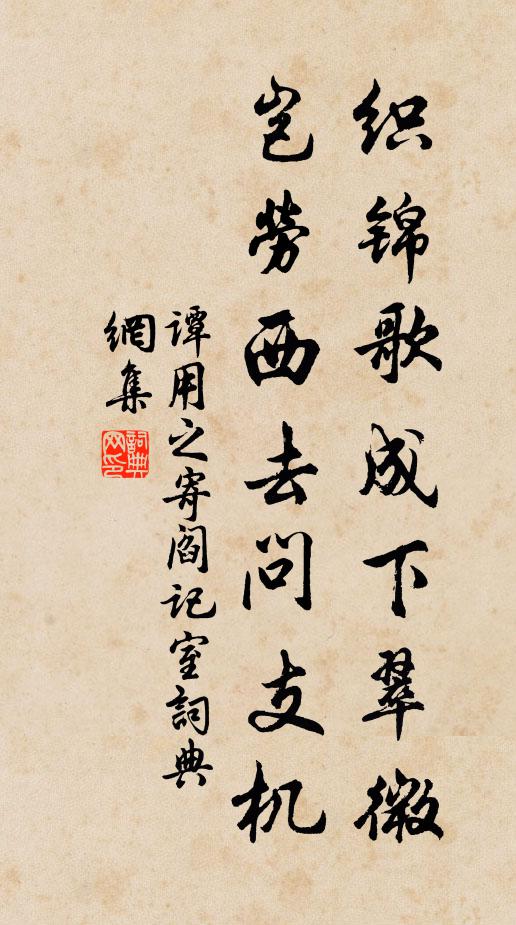 织锦歌成下翠微
岂劳西去问支机
谭用之寄阎记室词典
網集
詞典網印